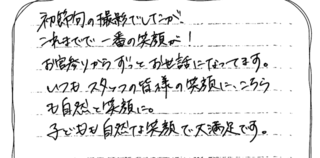 初節句の撮影でしたが、
これまでで一番の笑顔が!
お宮参りからずっとお世話になってます。
いつも、スタッフの皆様の笑顔に、こちら
も自然と笑顔に。
子どもも自然な笑顔で大満足です。